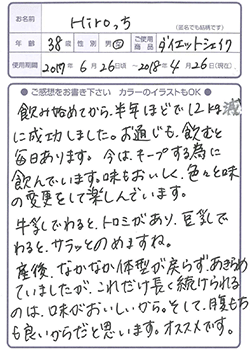 お名前 Hiroっち
(匿名でも結構です)
年齢 38歳 性別 男・女 ご使用商品 ダイエットシェイク
使用期間 2017年6月26日頃～2018年4月26日(現在)
●ご感想をお書き下さい カラーのイラストもOK●
飲み始めてから、半年ほどで12kg減
に成功しました。お通じも、飲むと
毎日あります。今は、キープする為に
飲んでいます。味もおいしく、色々と味
の変更をして楽しんでいます。
牛乳でわると、トロミがあり、豆乳で
わると、サラッとのめますね。
産後、なかなか体型が戻らず、あきらめ
ていましたが、これだけ長く続けられる
のは、味がおいしいから。そして、腹もち
も良いからだと思います。オススメです。